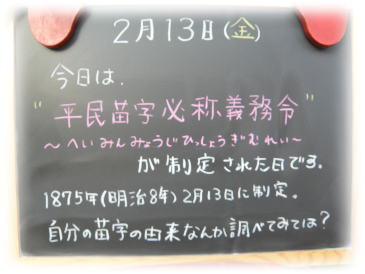 2月13日(金)
今日は、
"平民苗字必称義務令"
～へいみんみょうじひっしょうぎむれい～
が制定された日です。
1875年(明治8年)2月13日に制定。
自分の苗字の由来なんか調べてみては?